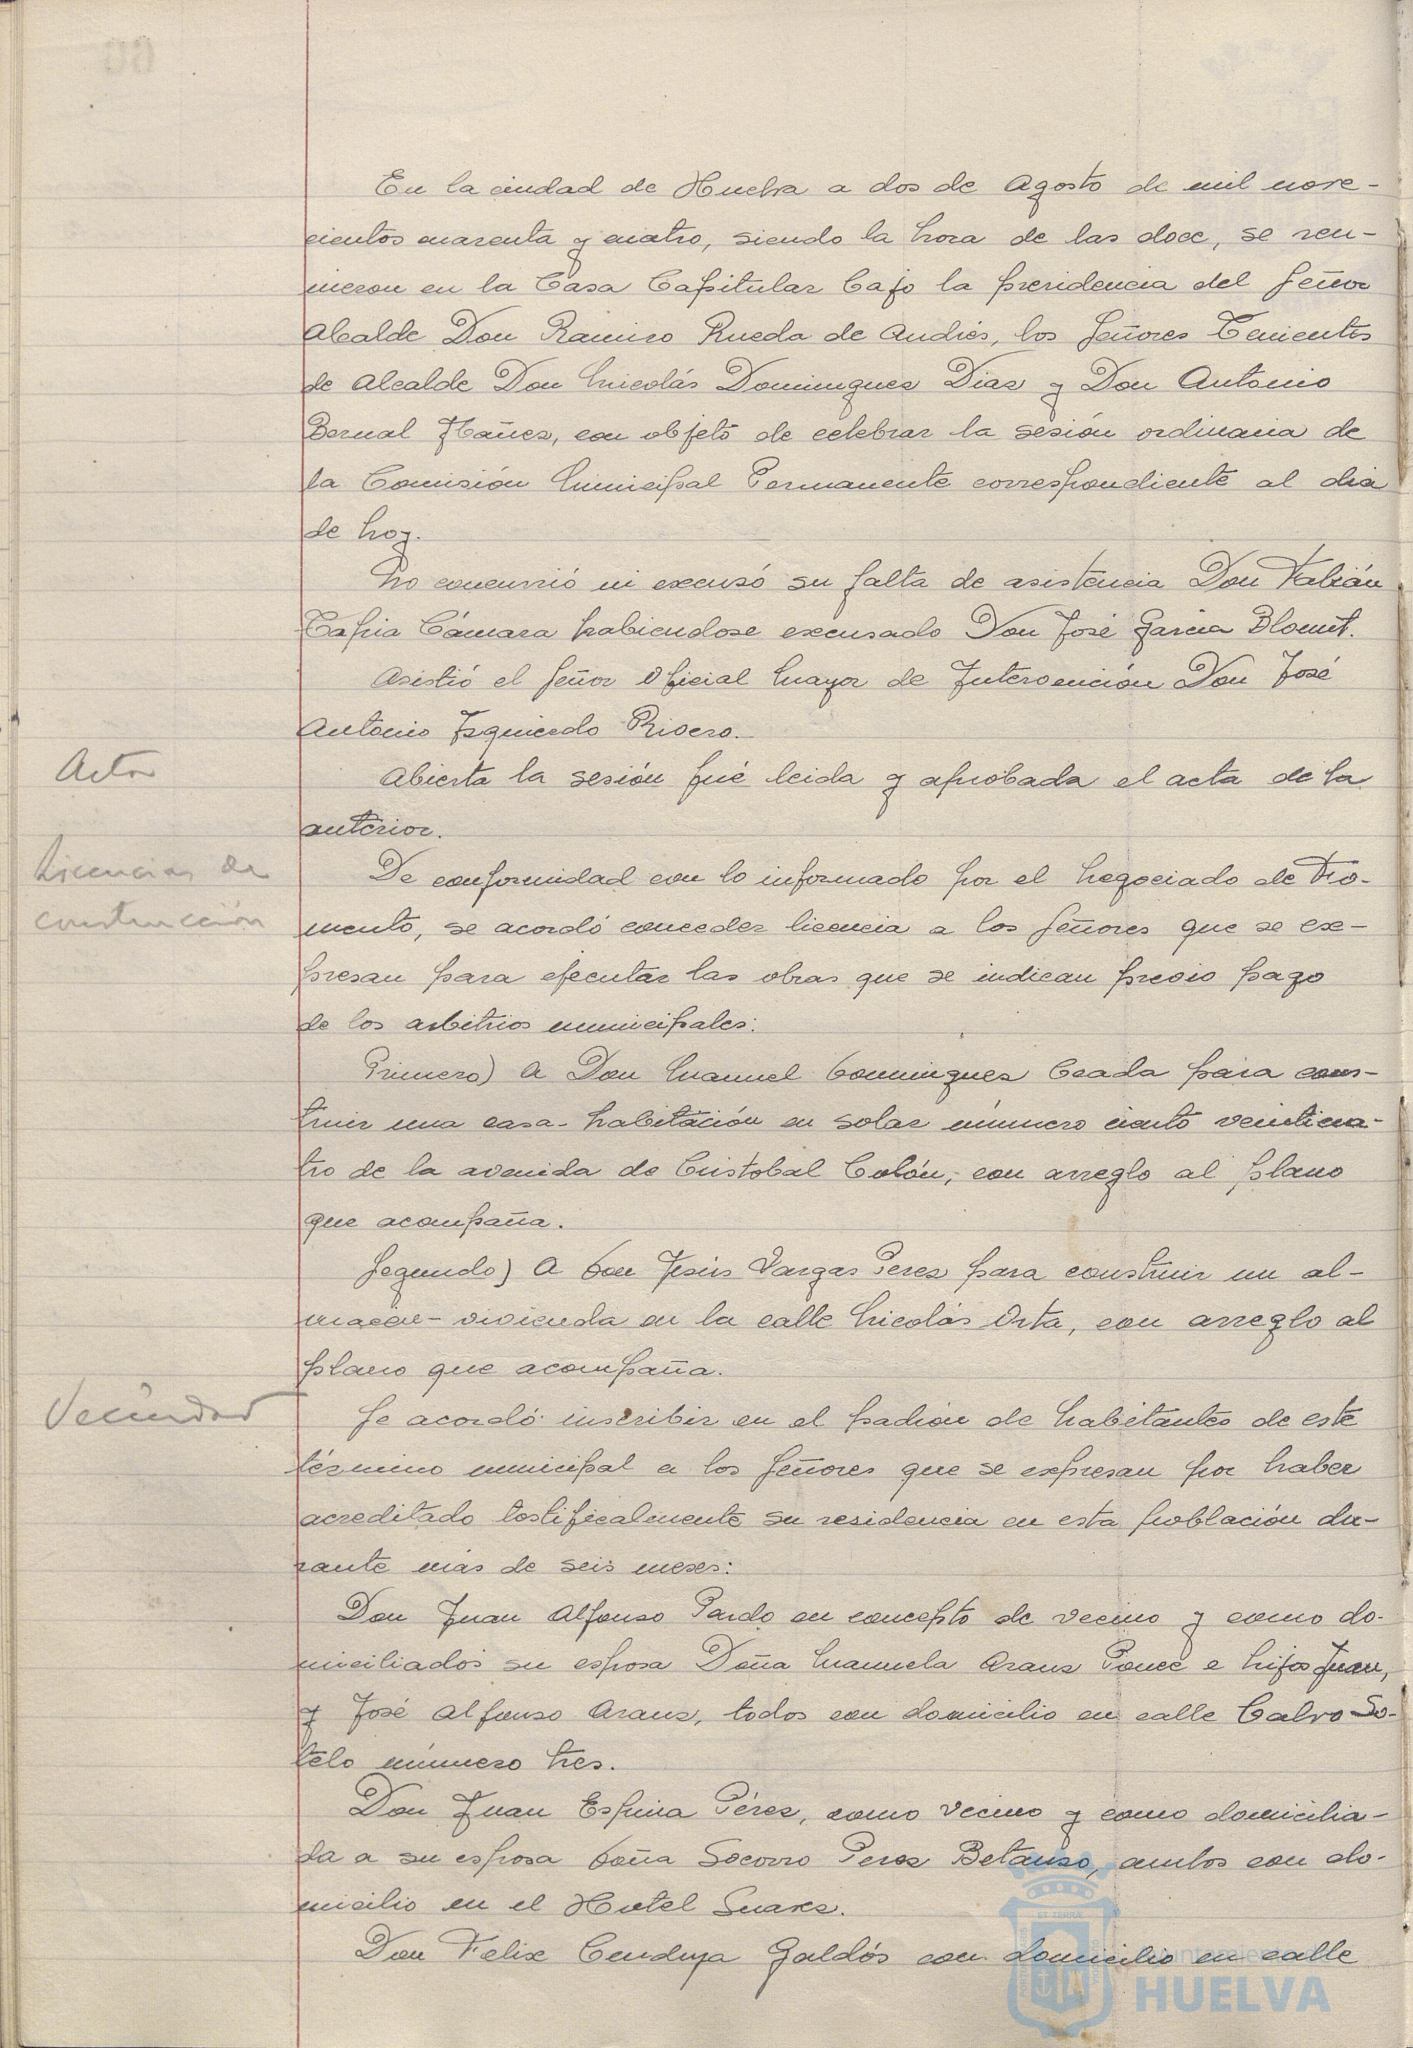 En la ciudad de Huelva a dos de Agosto de mil nove-
cientos cuarenta y cuatro, siendo la hora de las doce, se reu-
nieron en la Casa Capitular bajo la presidencia del Señor
Alcalde Don Ramiro Rueda de Andrés, los Señores Tenientes
de Alcalde Don Nicolás Dominguez Diaz y Don Antonio
Bernal Ybañez, con objeto de celebrar la sesión ordinaria de
la Comisión Municipal Permanente correspondiente al dia
de hoy.
No concurrió ni excusó su falta de asistencia Don Fabián
Tapia Cámara habiendose excusado Don José Garcia Blomet.
Asistió el Señor Oficial Mayor de Intervención Don José
Antonio Izquierdo Rivero.
Acta
Abierta la sesión fué leida y aprobada el acta de la
anterior.
Licencias de
construcción
De conformidad con lo informado por el Negociado de Fo-
mento, se acordó conceder licencia a los Señores que se ex-
presan para ejecutar las obras que se indican previo pago
de los arbitrios municipales:
Primero) A Don Manuel Dominguez Ceada para cons-
truir una casa-habitación en solar número ciento veinticua-
tro de la avenida de Cristobal Colón, con arreglo al plano
que acompaña.
Segundo) A Don Jesús Vargas Perez para construir un al-
macén-vivienda en la calle Nicolás Orta, con arreglo al
plano que acompaña.
Vecindad
Se acordó inscribir en el padrón de habitantes de este
término municipal a los Señores que se expresan por haber
acreditado testificalmente su residencia en esta población du-
rante más de seis meses:
Don Juan Alfonso Pardo en concepto de vecino y como do-
miciliados su esposa Doña Manuela Arauz Ponce e hijos Juan,
y José Alfonso Arauz, todos con domicilio en calle Calvo So-
telo número tres.
Don Juan Espina Pérez, como vecino y como domicilia-
da a su esposa Doña Socorro Perez Betanzo, ambos con do-
micilio en el Hotel Suarez.
Don Felix Cenduya Galdós con domicilio en calle
Ayuntamiento
HUELVA